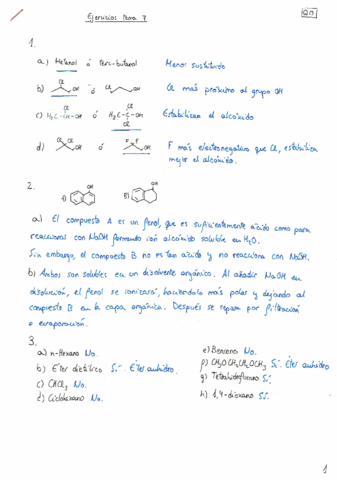 Ejercicios tema 7
QO
1.
a) Metanol ó terc-butanol Menos sustituido
b) Cl OH ó Cl OH Cl más próximo al grupo OH
c) H₂C-CH-OH ó H₂C-C-OH Estabilizan el alcóxido
Cl Cl Cl Cl
d) Cl Cl OH ó F F OH F más electronegativo que Cl, estabiliza
mejor el alcóxido.
2.
A) OH B) OH
a) El compuesto A es un fenol, que es suficientemente ácido como para
reaccionar con NaOH formando ión alcóxido soluble en H₂O.
Sin embargo, el compuesto B no es tan ácido y no reacciona con NaOH.
b) Ambos son solubles en un disolvente orgánico. Al añadir NaOH en
disolución, el fenol se ionizará, haciéndolo más polar y dejando al
compuesto B en la capa orgánica. Después se separa por filtración
o evaporación.
3.
a) n-Hexano No.
b) Éter dietílico Sí. Éter anhidro.
c) CHCl₃ No.
d) Ciclohexano No.
e) Benceno No.
f) CH₃OCH₂CH₂OCH₃ Sí. Éter anhidro.
g) Tetrahidrofurano Sí.
h) 1,4-dioxano Sí.
1